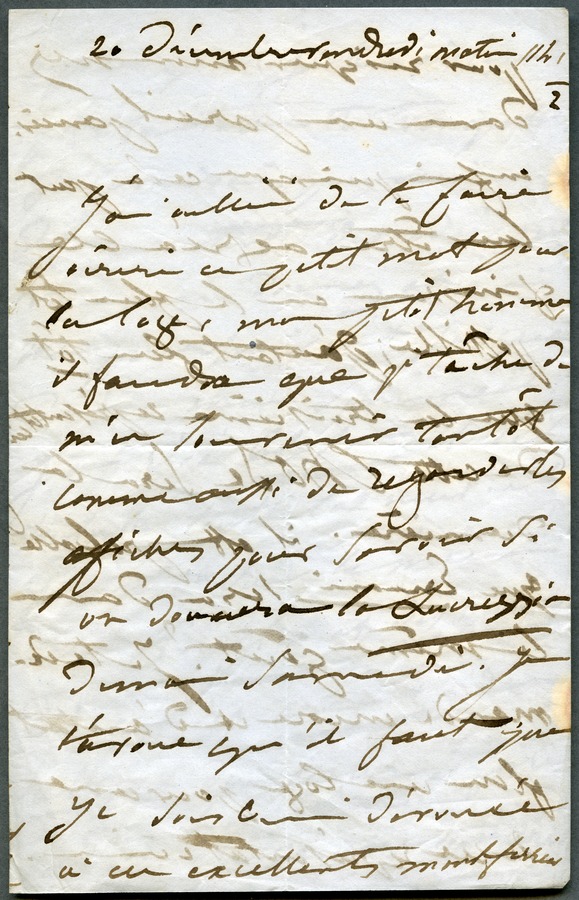 20 Décembre vendredi matin 11h 1/2
J'ai oublié de te faire
écrire ce petit mot pour
la loge, mon petit homme
il faudra que je tâche de
m'en souvenir tantôt
comme aussi de regarder les
affiches pour savoir si
on donnera la Lucrezzia
demain samedi. Je
t'avoue qu'il faut que
je sois bien dévouée
à ces excellents montferrier